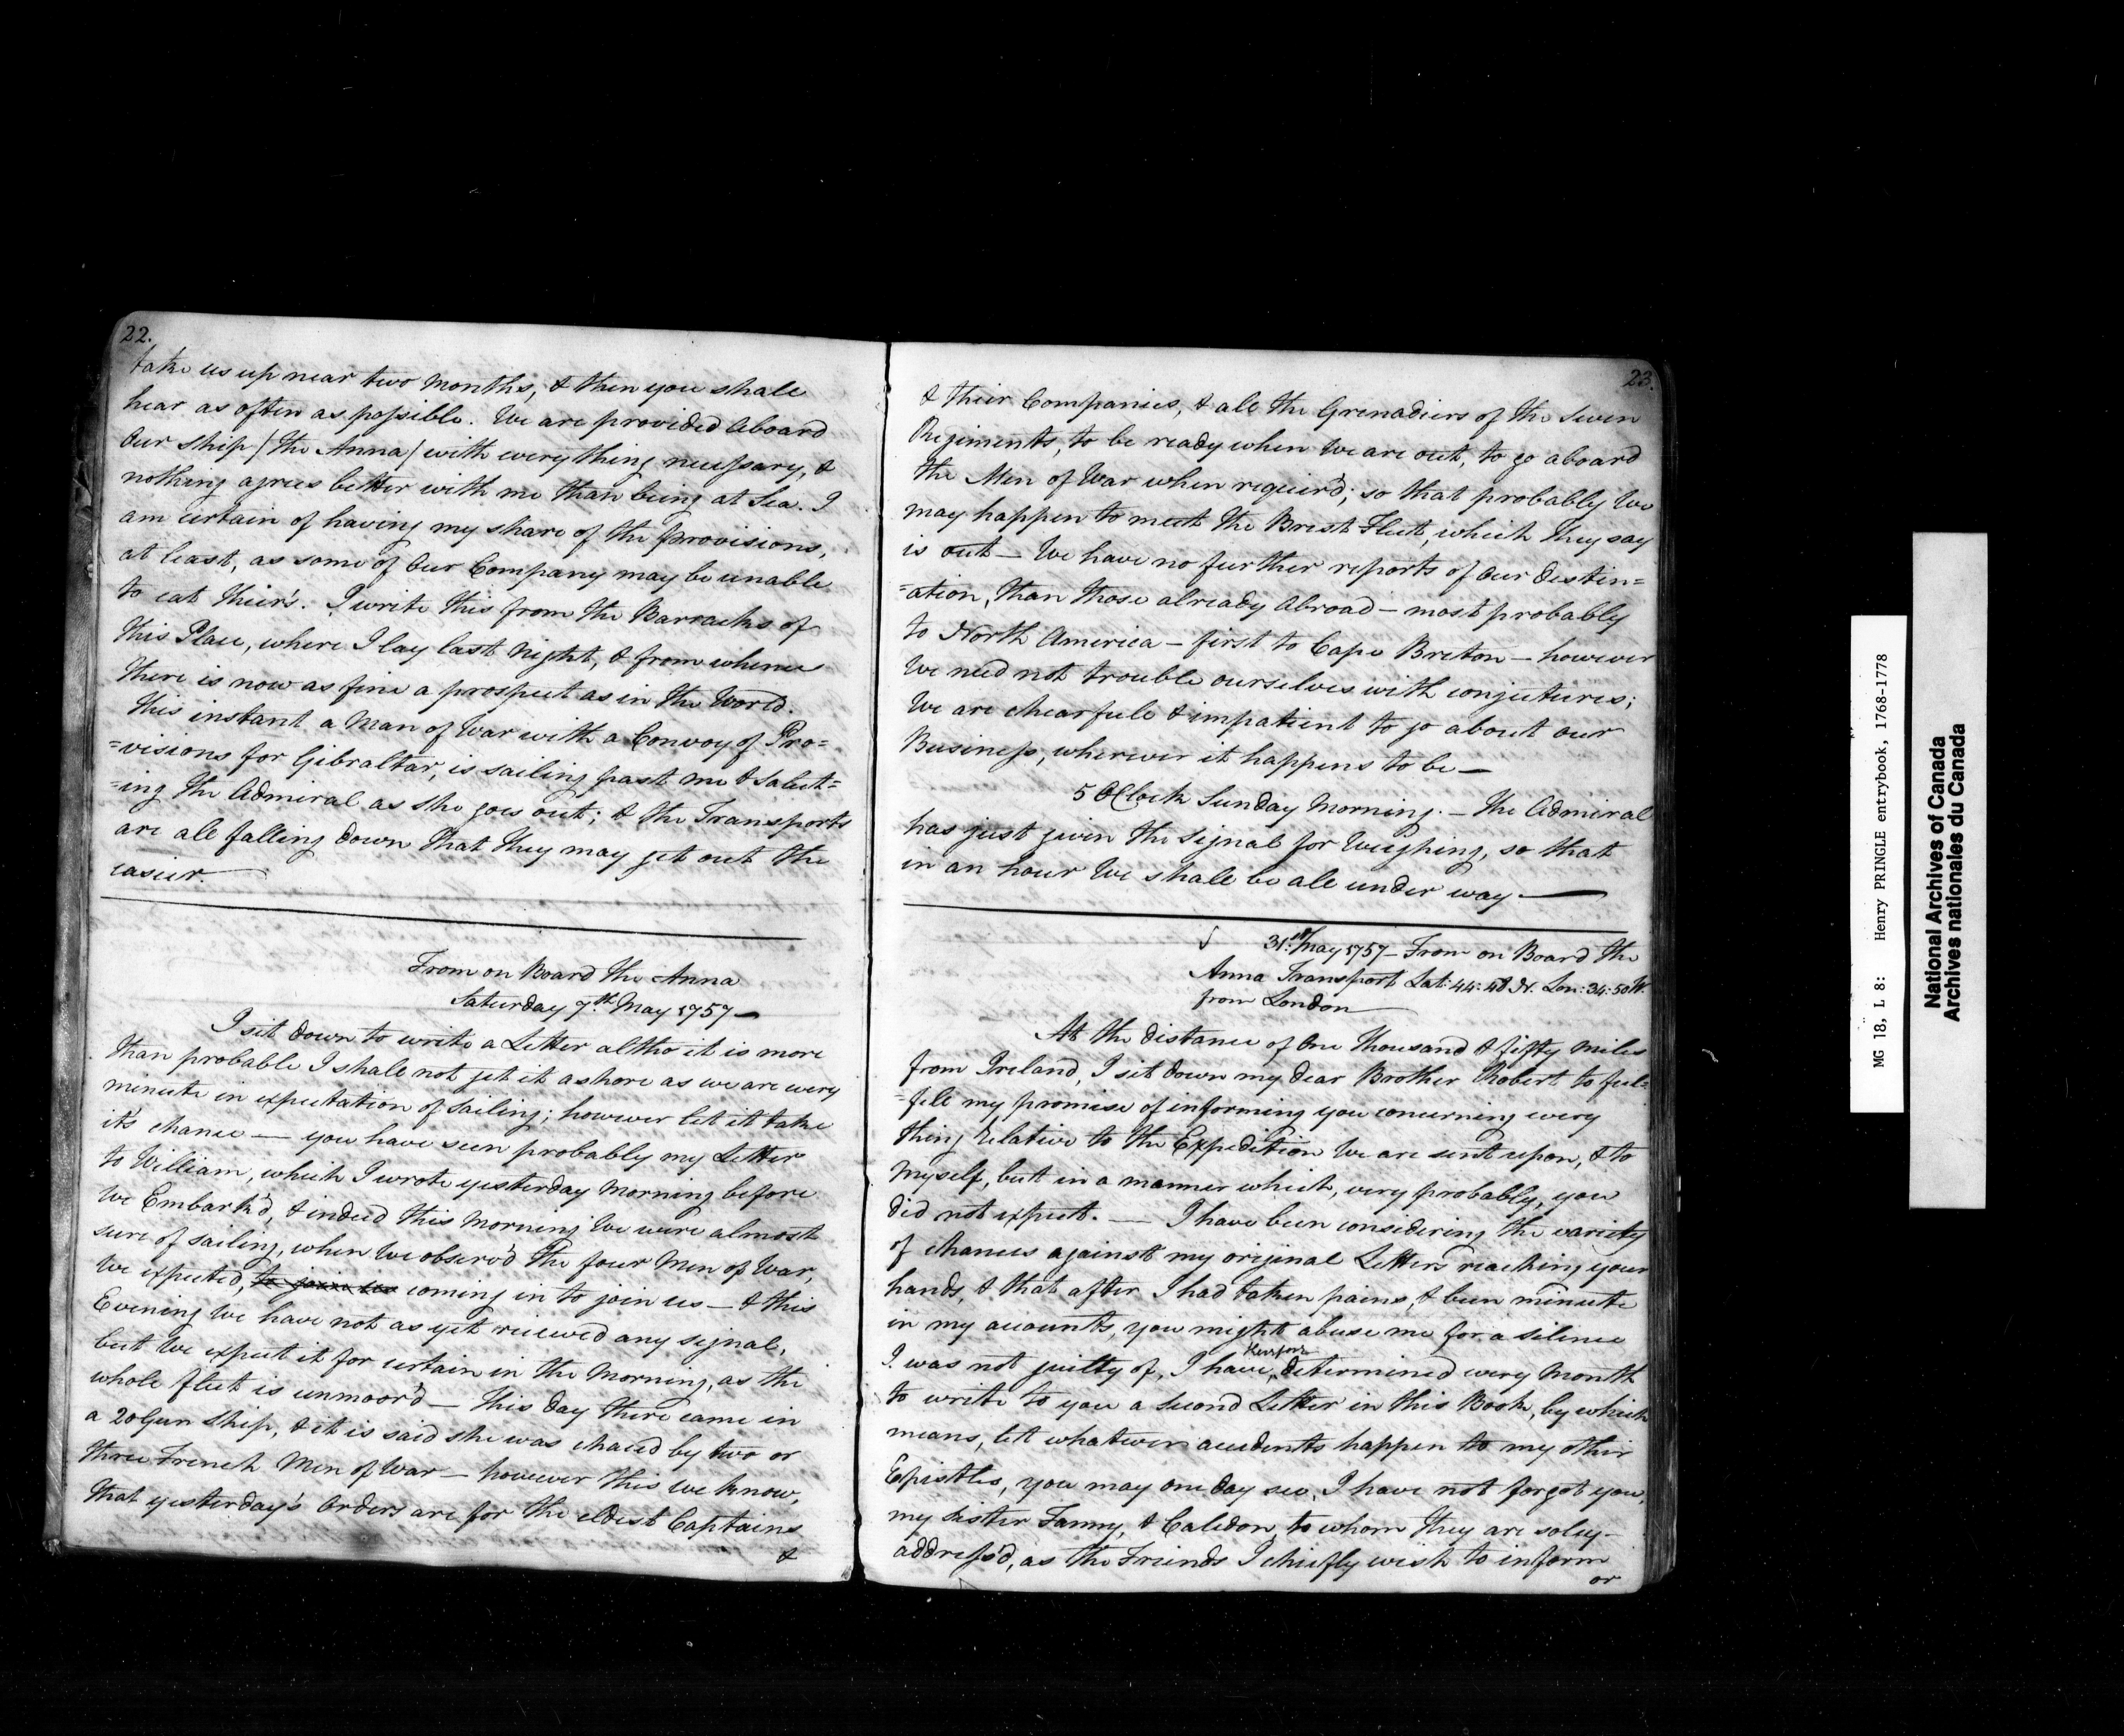 22.
take us up near two Months, & then you shall
hear as often as possible. We are provided aboard
Our Ship (the Anna) with every thing necessary, &
nothing agrees better with me than being at Sea. I
am certain of having my share of the provisions,
at least, as some of Our Company may be unable
to eat their's. I write this from the Barracks of
this Place, where I lay last Night, & from whence
there is now as fine a prospect as in the World.
This instant a Man of War with a Convoy of Pro=
=visions for Gibraltar, is sailing past me & Salut=
=ing the Admiral as she goes out; & the Transports
are all falling down that they may get out the
easier.
From on Board the Anna
Saturday 7th. May 1757—
I sit down to write a Letter altho it is more
than probable I shall not get it ashore as we are every
minute in expectation of sailing; however let it take
it's chance — you have seen probably my Letter
to William, which I wrote yesterday Morning before
We Embark'd, & indeed this Morning We were almost
sure of sailing, when We observ'd the four Men of War,
We expected, to join us coming in to join us — & this
Evening We have not as yet received any signal,
but We expect it for certain in the Morning, as the
whole fleet is unmoor'd — This day there came in
a 20 Gun Ship, & it is said she was chaced by two or
three French Men of War — however this We know,
that yesterday's Orders are for the eldest Captains
&
23.
& their Companies, & all the Grenadiers of the Seven
Regiments, to be ready when We are out, to go aboard
the Men of War when requir'd; so that probably We
may happen to meet the Brest Fleet, which they say
is out — We have no further reports of Our destin=
=ation, than those already Abroad — most probably
to North America — first to Cape Breton — however
We need not trouble ourselves with conjectures;
We are chearfull & impatient to go about our
Business, wherever it happens to be —
5 OClock Sunday Morning. — The Admiral
has just given the Signal for Weighing, so that
in an hour We shall be all under way. —
31st. May 1757 — From on Board the
Anna Transport Lat: 44:48 N. Lon: 34:50 W.
from London
At the distance of One Thousand & fifty Miles
from Ireland, I sit down my dear Brother Robert to ful=
=fill my promise of informing you concerning every
thing relative to the Expedition We are sent upon, & to
Myself, but in a manner which, very probably, you
did not expect. — I have been considering the variety
of chances against my original Letters reaching your
hands, & that after I had taken pains, & been minute
in my accounts, you might abuse me for a silence
I was not guilty of, I have, therefore determined every Month
to write to you a second Letter in this Book, by which
means, let whatever accidents happen to my other
Epistles, you may one day see, I have not forgot you,
my Sister Fanny, & Caledon, to whom they are soley
address'd, as the Friends I chiefly wish to inform
or
MG 18, L 8: Henry PRINGLE entrybook, 1768-1778
National Archives of Canada
Archives nationales du Canada